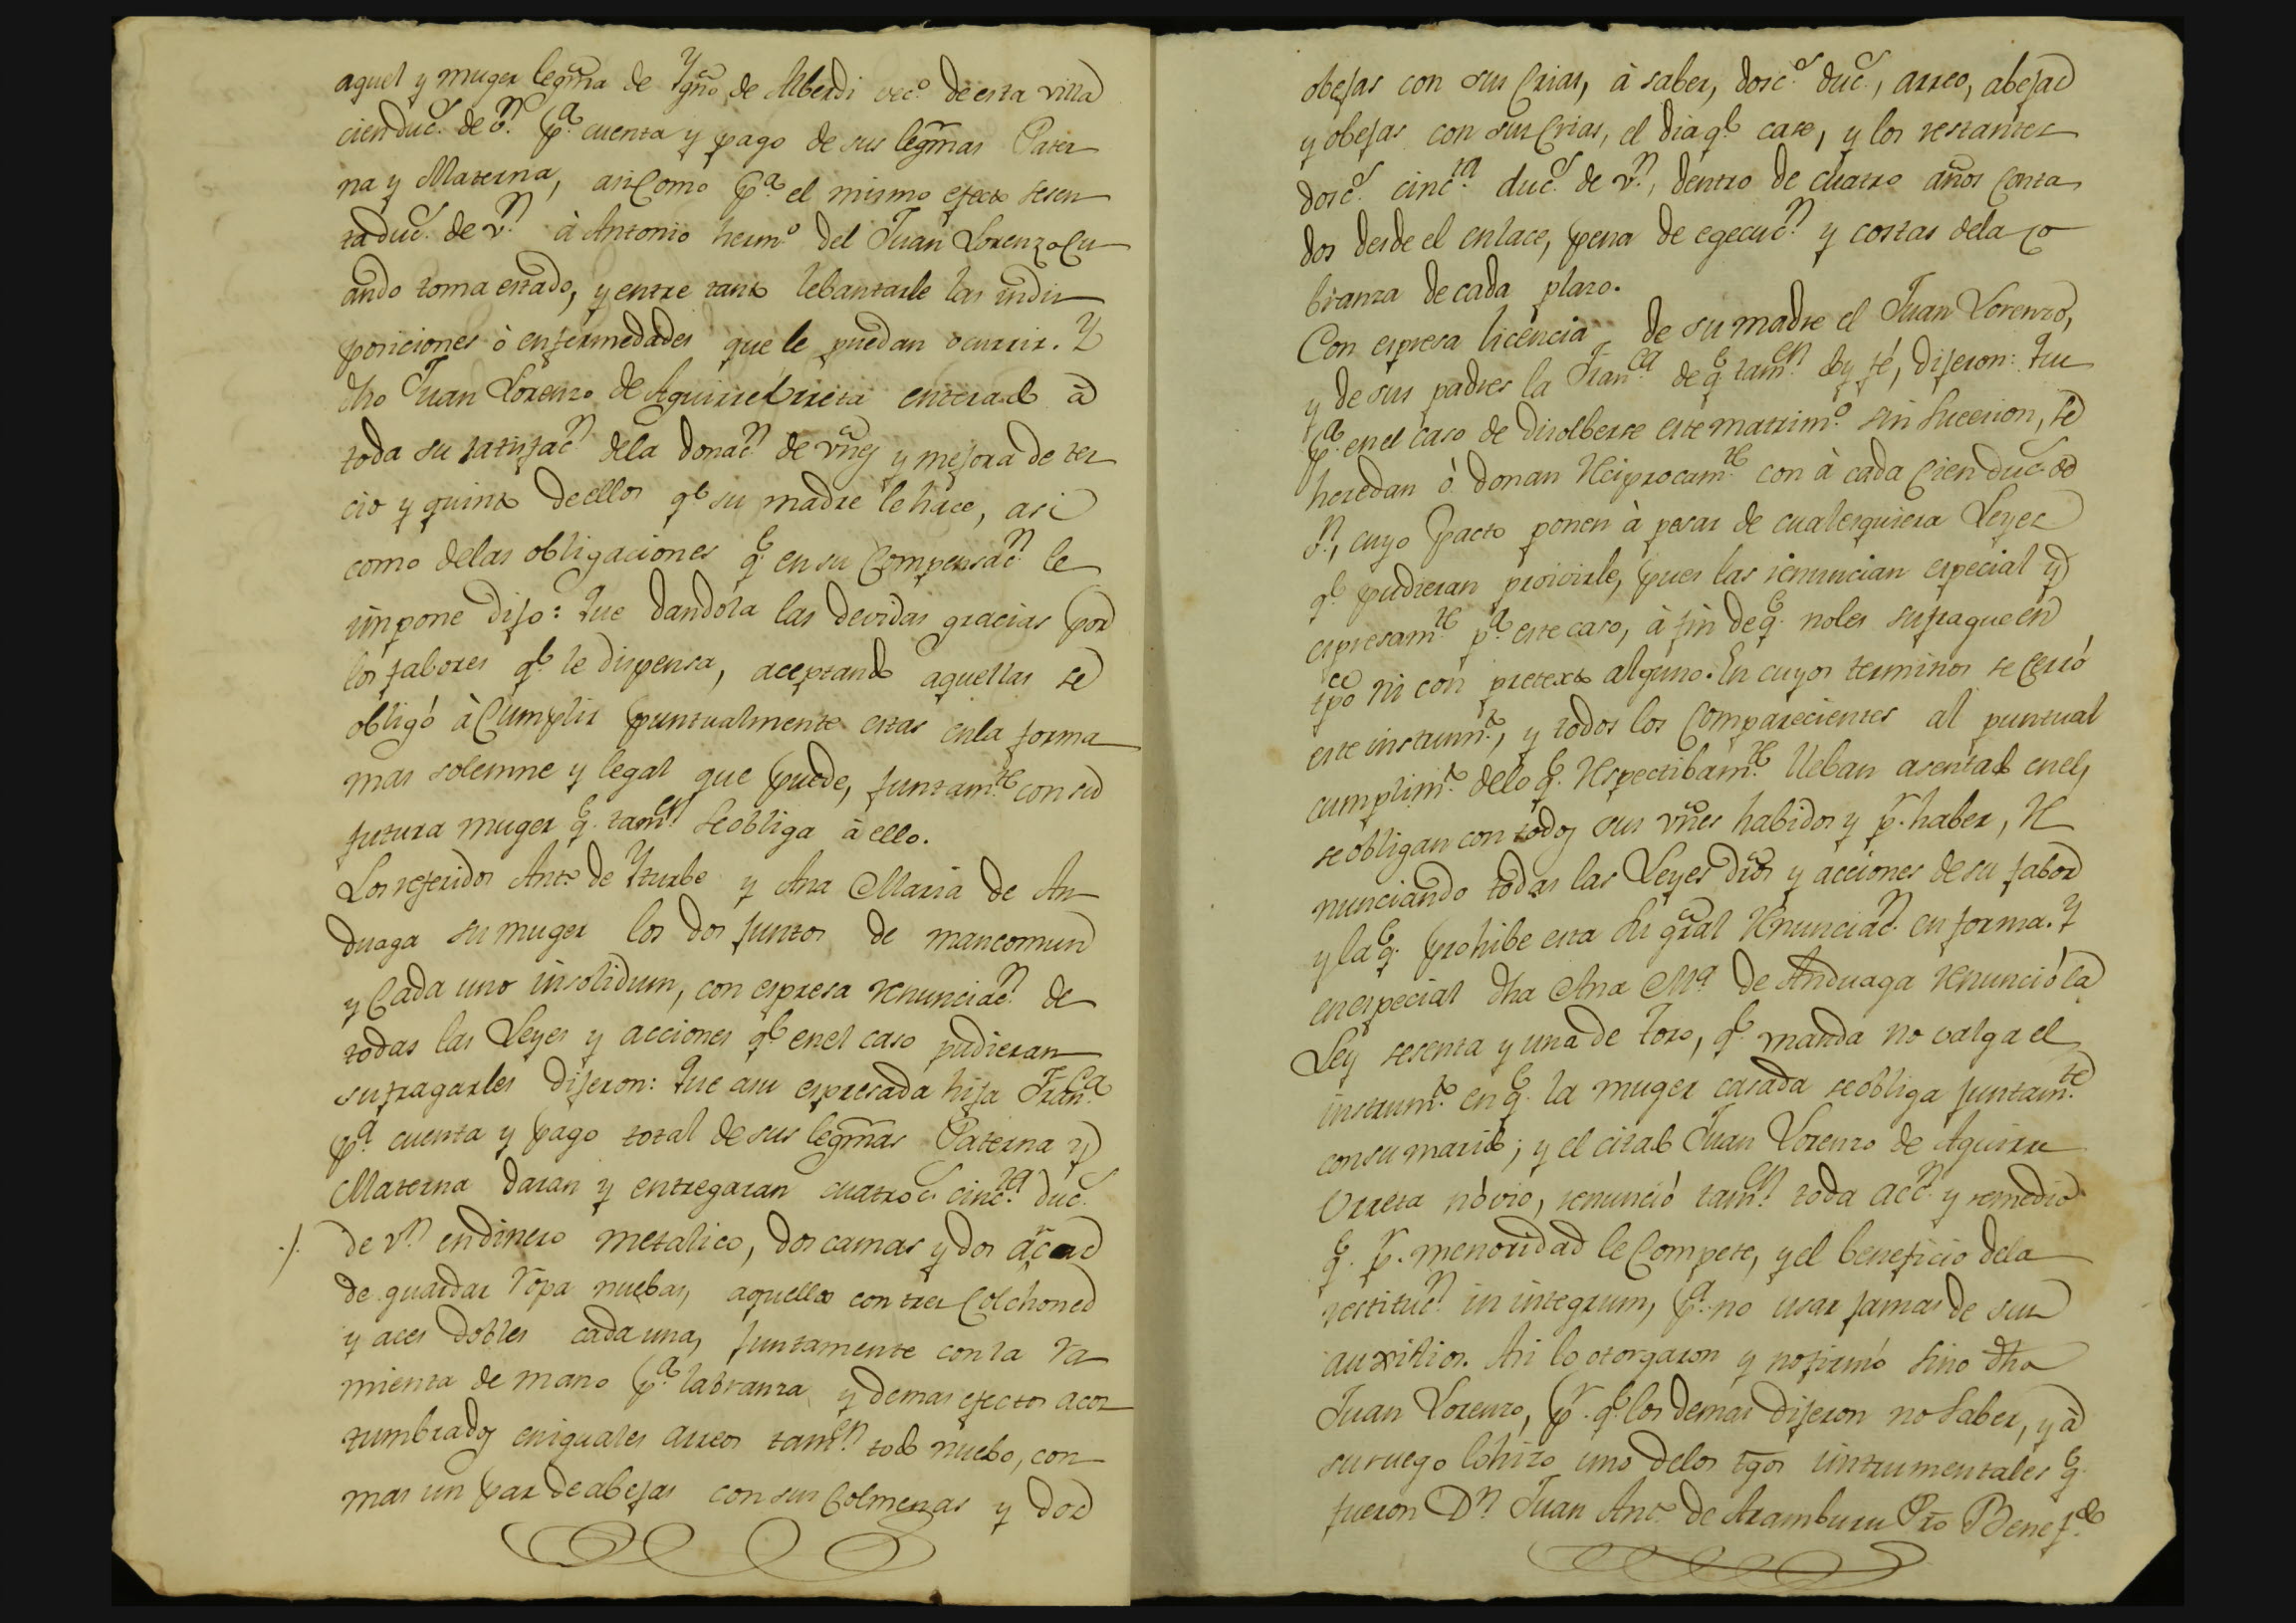 aquel y muger legma de Ygno de Alberdi vec.º de esta villa
cien duc.s de v.n p.a cuenta y pago de sus legmas Pater
na y Materna, asi Como p.a el mismo efecto sesen
ta duc.s de v.n à Antonio herm.º del Juan Lorenzo Cu
ando toma estado, y entre tanto lebantarle las indis
posiciones ò enfermedades que le puedan ocurrir. Y
dho Juan Lorenzo de Aguirre Urreta enterado à
toda su satisfac.n dela donac.n de vnes y mejora de ter
cio y quinto de ellos q.e su madre le hace, asi
como delas obligaciones q.e en su Compensac.n le
impone dijo: Que dandola las devidas gracias por
los fabores q.e le dispensa, aceptando aquellas se
obligó à Cumplir puntualmente estas enla forma
mas solemne y legal que puede, juntam.te con su
futura muger q.e tamen se obliga à ello.
Los referidos Ant.º de Yturbe y Ana Maria de An
duaga su muger los dos juntos de mancomun
y Cada uno insolidum, con espresa renunciac.n de
todas las Leyes y acciones q.e enel caso pudieran
sufragarles dijeron: Que asu espresada hija Fran.ca
p.a cuenta y pago total de sus legmas Paterna y
Materna daran y entregaran cuatroc.s cinc.ta duc.s
de v.n en dinero metalico, dos camas y dos
de guardar ropa nuebas, aquellas con tres Colchones
y aces dobles cada una, juntamente con la ra
mienta de mano p.a labranza y demas efectos acos
tumbrados en iguales arreos tamen todo nuebo, con
mas un par de abejas con sus Colmenas y dos
obejas con sus Crias, à saber, dosc.s duc.s, arreo, abejas
y obejas con sus Crias, el dia q.e case, y los restantes
dosc.s cinc.ta duc.s de v.n, dentro de cuatro años Conta
dos desde el enlace, pena de egecuc.n y costas dela co
branza de cada plazo.
Con espresa licencia de su madre el Juan Lorenzo,
y de sus padres la Fran.ca de q.e tamen doy fé, dijeron: Que
p.a en el caso de disolberse este matrim.º sin Sucesion, se
heredan ó donan reciprocam.te con à cada Cien duc.s de
v.n, cuyo Pacto ponen à pesar de cualesquiera Leyes
q.e pudieran proivirle, pues las renuncian especial y
espresam.te p.a este caso, à fin de q.e no les sufraguen en
tpo ni con pretexto alguno. En cuyos terminos se Cerró
este instrum.to, y todos los Comparecientes al puntual
cumplim.to delo q.e respectibam.te lleban asentado enel,
se obligan con todos sus vnes habidos y p.r haber, re
nunciando todas las Leyes dros y acciones de su fabor
y la q.e prohibe esta su gral renunciac.n en forma. Y
en especial dha Ana M.a de Anduaga renunció la
Ley sesenta y una de Toro, q.e manda no valga el
instrum.to en q.e la muger casada se obliga juntam.te
con su marido; y el citado Juan Lorenzo de Aguirre
Urreta nóvio, renunció tamen toda acc.n y remedio
q.e p.r menoridad le Compete, y el beneficio dela
restituc.n in integrum, p.a no usar jamas de sus
auxilios. Asi lo otorgaron y no firmó sino dho
Juan Lorenzo, p.r q.e los demas dijeron no saber, y à
su ruego lo hizo uno delos tgos instrumentales q.e
fueron D.n Juan Ant.º de Aramburu Pro Benef.do